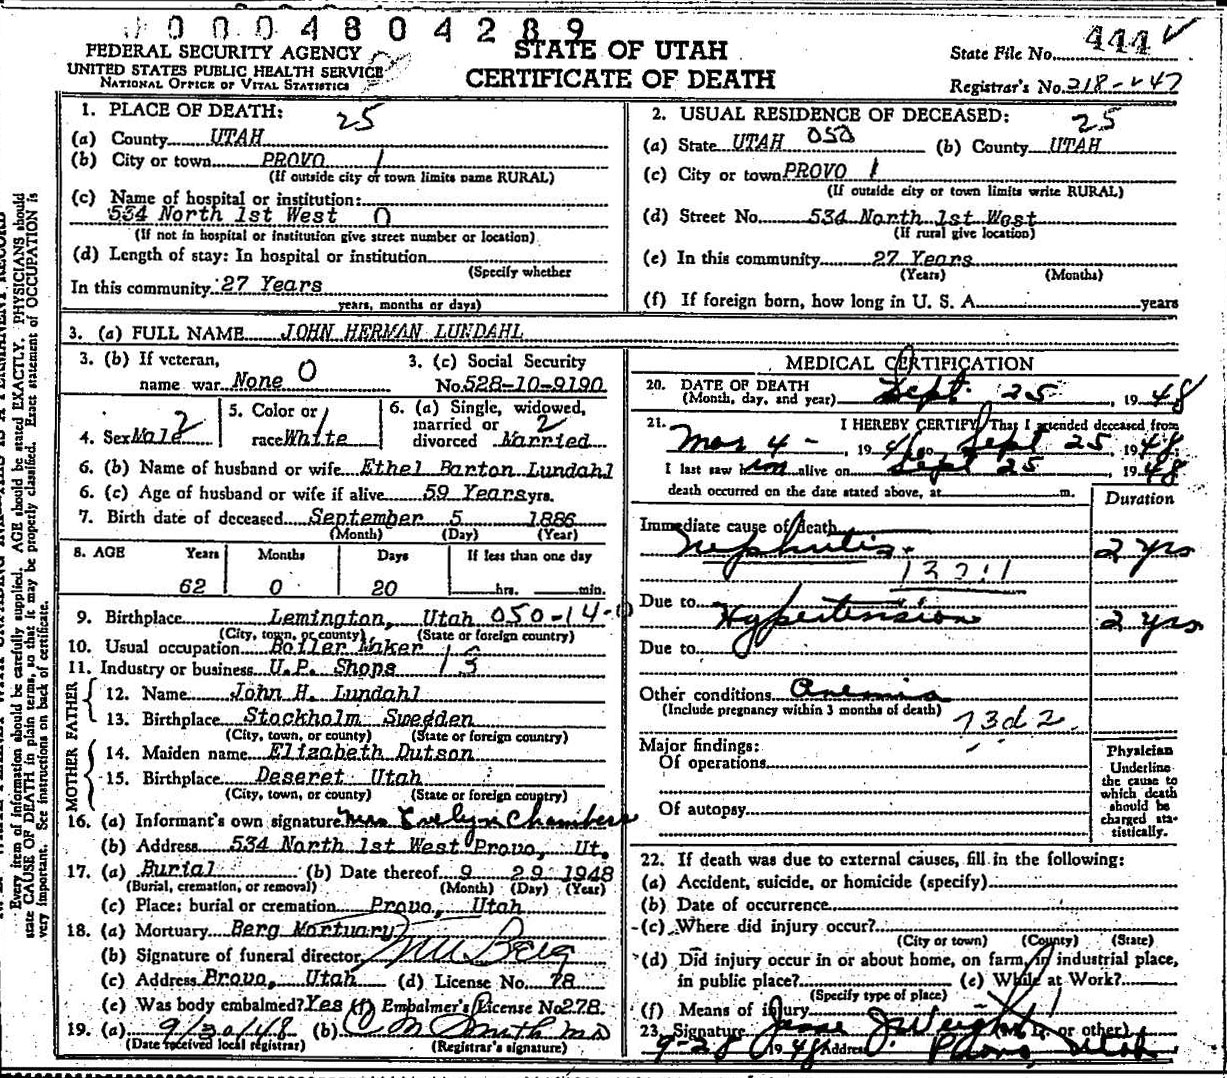 0 0 0 4 8 0 4 2 8 9
FEDERAL SECURITY AGENCY
UNITED STATES PUBLIC HEALTH SERVICE
NATIONAL OFFICE OF VITAL STATISTICS
STATE OF UTAH
CERTIFICATE OF DEATH
State File No. 444
Registrar's No. 218-447
1. PLACE OF DEATH: 25
(a) County UTAH
(b) City or town PROVO 1
(If outside city or town limits name RURAL)
(c) Name of hospital or institution:
534 North 1st West 0
(If not in hospital or institution give street number or location)
(d) Length of stay: In hospital or institution
(Specify whether
In this community 27 Years
years, months or days)
2. USUAL RESIDENCE OF DECEASED: 25
(a) State UTAH 050 (b) County UTAH
(c) City or town PROVO 1
(If outside city or town limits write RURAL)
(d) Street No. 534 North 1st West
(If rural give location)
(e) In this community 27 Years
(Years) (Months)
(f) If foreign born, how long in U. S. A. years
3. (a) FULL NAME JOHN HERMAN LUNDAHL
3. (b) If veteran,
name war None 0
3. (c) Social Security
No. 528-10-9190
4. Sex Male 2
5. Color or
race White 1
6. (a) Single, widowed,
married or 2
divorced Married
6. (b) Name of husband or wife Ethel Barton Lundahl
6. (c) Age of husband or wife if alive 59 Years yrs.
7. Birth date of deceased September 5 1886
(Month) (Day) (Year)
8. AGE Years Months Days If less than one day
62 0 20 hrs. min.
9. Birthplace Lemington, Utah 050-14-0
(City, town, or county) (State or foreign country)
10. Usual occupation Boiler Maker
11. Industry or business U.P. Shops 13
FATHER
12. Name John H. Lundahl
13. Birthplace Stockholm Swedden
(City, town, or county) (State or foreign country)
MOTHER
14. Maiden name Elizabeth Dutson
15. Birthplace Deseret Utah
(City, town, or county) (State or foreign country)
16. (a) Informant's own signature Mrs Evelyn Chambers
(b) Address 534 North 1st West Provo, Ut.
17. (a) Burial (b) Date thereof 9 29 1948
(Burial, cremation, or removal) (Month) (Day) (Year)
(c) Place: burial or cremation Provo, Utah
18. (a) Mortuary Berg Mortuary
(b) Signature of funeral director Berg
(c) Address Provo, Utah (d) License No. 78
(e) Was body embalmed? Yes (f) Embalmer's License No 278
19. (a) 9/30/48 (b) C M Smith MD
(Date received local registrar) (Registrar's signature)
MEDICAL CERTIFICATION
20. DATE OF DEATH
(Month, day, and year) Sept 25, 1948
21. I HEREBY CERTIFY, That I attended deceased from
Mar 4 - , 1946 to Sept 25, 1948
I last saw him alive on Sept 25 1948
death occurred on the date stated above, at m.
Duration
Immediate cause of death
Nephritis. 2 yrs
Due to Hypertension 2 yrs
Due to
Other conditions Anemia
(Include pregnancy within 3 months of death) 73d2
Major findings:
Of operations
Of autopsy
Physician
Underline
the cause to
which death
should be
charged sta-
tistically.
22. If death was due to external causes, fill in the following:
(a) Accident, suicide, or homicide (specify)
(b) Date of occurrence
(c) Where did injury occur?
(City or town) (County) (State)
(d) Did injury occur in or about home, on farm, in industrial place,
in public place? (e) While at Work?
(Specify type of place)
(f) Means of injury
23. Signature Jesse J. Weight or other)
9-28 1948 Address Provo, Utah
Every item of information should be carefully supplied. AGE should be stated EXACTLY. PHYSICIANS should
state CAUSE OF DEATH in plain terms, so that it may be properly classified. Exact statement of OCCUPATION is
very important. See instructions on back of certificate.